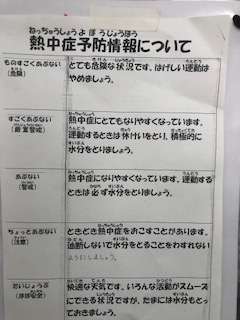 ねっちゅうしょう よ ぼう じょうほう
熱中症予防情報について
ものすごくあぶない
(危険)
とても危険な状況です。はげしい運動は
やめましょう。
すごくあぶない
(厳重警戒)
熱中症にとてもなりやすくなっています。
運動するときは休けいをとり、積極的に
水分をとりましょう。
あぶない
(警戒)
熱中症になりやすくなっています。運動する
ときは必ず水分をとりましょう。
ちょっとあぶない
(注意)
ときどき熱中症をおこすことがあります。
油断しないで水分をとることをわすれない
ようにしましょう。
だいじょうぶ
(ほぼ安全)
快適な天気です。いろんな活動がスムーズ
にできる状況ですが、たまには水分もとっ
ておきましょう。